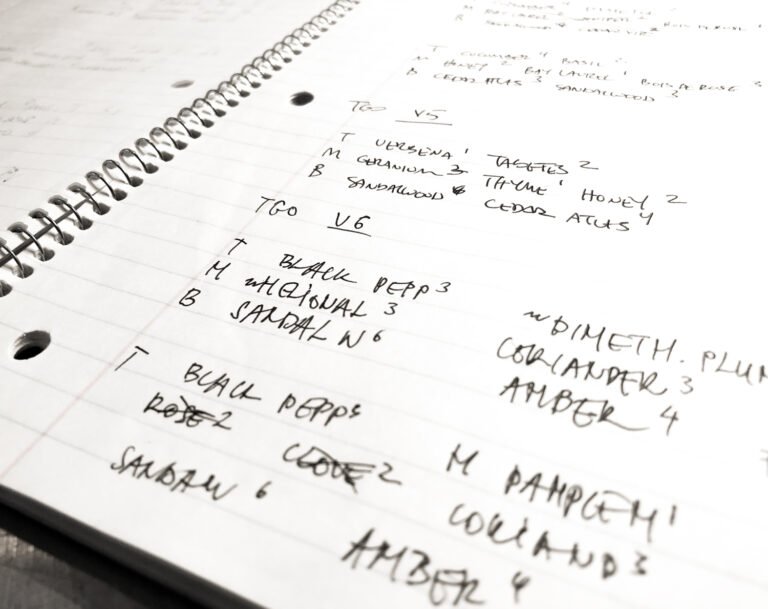 T CUCUMBER 4 BASIL
M HONEY 2 BAY LAUREL 1 BOIS DE ROSE 3
B CEDAR ATLAS 3 SANDALWOOD 3
TGO V5
T VERBENA 1 TAGETES 2
M GERANIUM 3 THYME 1 HONEY 2
B SANDALWOOD 6 CEDAR ATLAS 4
TGO V6
T BLACK PEPP 3 ~DIMETH. PLUM
M ~HELIONAL 3 CORIANDER 3
B SANDAL W 6 AMBER 4
T BLACK PEPP M PAMPLEM 1
ROSE 2 CLOVE 2 CORIAND 3
SANDALW 6 AMBER 4